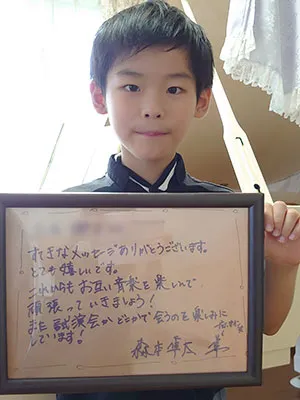 すてきなメッセージありがとうございます。
とても嬉しいです。
これからもお互い音楽を楽しんで
頑張っていきましょう!
また試演会かどこかで会うのを楽しみに
しています!
森本隼太